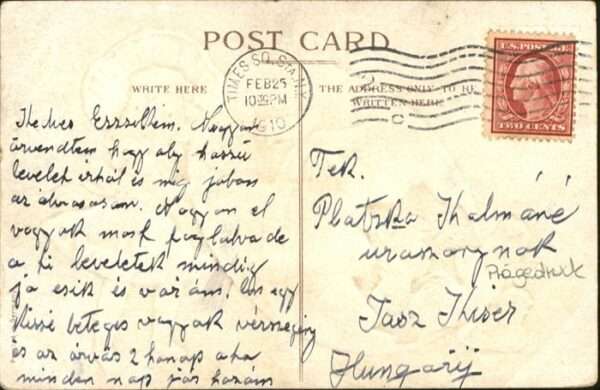 POST CARD
WRITE HERE
THE ADDRESS ONLY TO BE
WRITTEN HERE
TIMES SQ. STA. N.Y.
FEB 25
10 30 PM
1910
U.S. POSTAGE
TWO CENTS
Kedves Erzsikém. Nagyon
örvendtem hogy oly hosszú
levelet irtál és még jobban
az olvasásom. Nagyon el
vagyok most foglalva de
a ti leveletek mindig
jó esik és várom. én egy
kissé beteges vagyok vérszegény
és az orvos 2 honap óta
minden nap jár hozám
Tek.
Platzka Kalmáné
uraszonynak
Prägedruck
Jasz Kiser
Hungarÿ